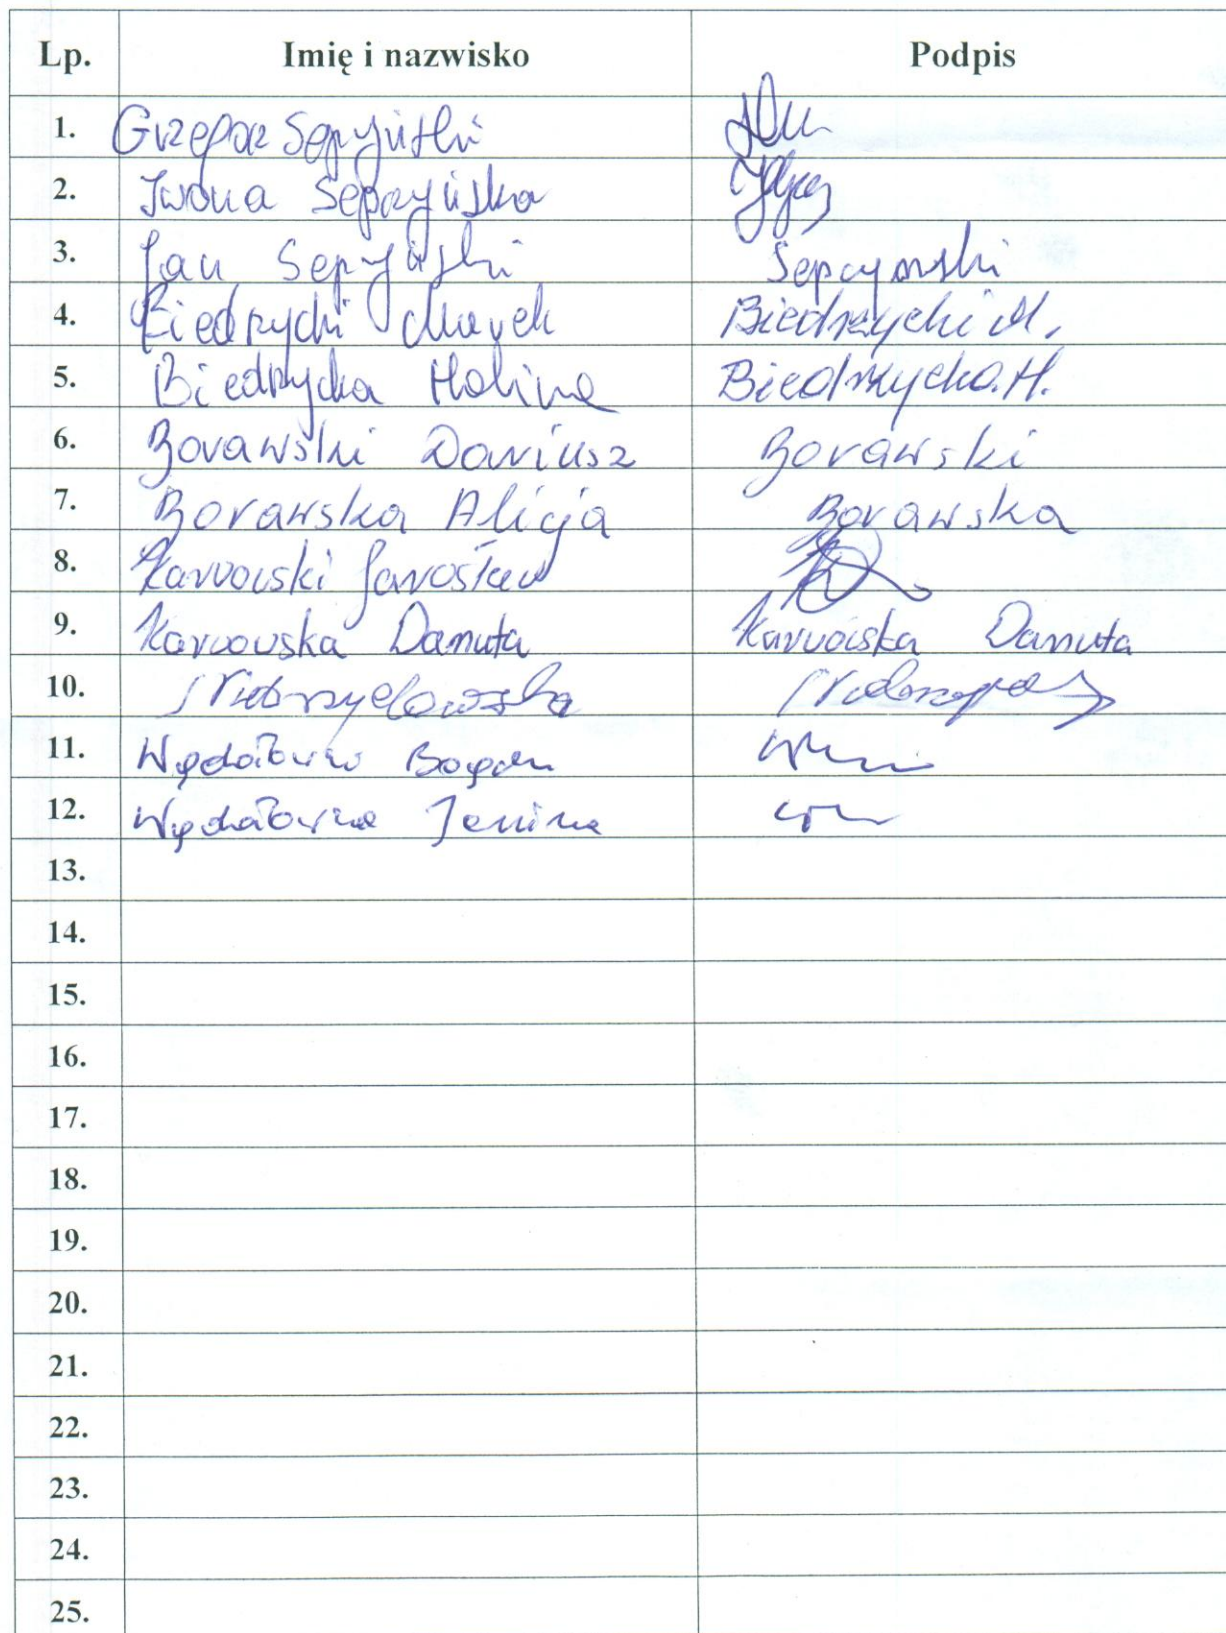 Lp. Imię i nazwisko Podpis
1. Grzegorz Sepczyński
2. Iwona Sepczyńska
3. Jan Sepczyński Sepczyński
4. Biedrzycki Marek Biedrzycki M.
5. Biedrzycka Halina Biedrzycka H.
6. Borawski Dariusz Borawski
7. Borawska Alicja Borawska
8. Karwowski Jarosław
9. Karwowska Danuta Karwowska Danuta
10.
11. Bogdan
12. Janina
13.
14.
15.
16.
17.
18.
19.
20.
21.
22.
23.
24.
25.